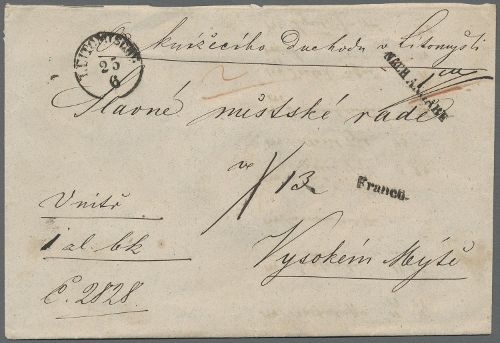 Od knížecího důchodu v Litomyšli
LEITOMISCHL
25
6
Slavné městské radě
13
Franco.
Vnitř
1 al. bk
Č. 2828.
Vysokém Mýtě